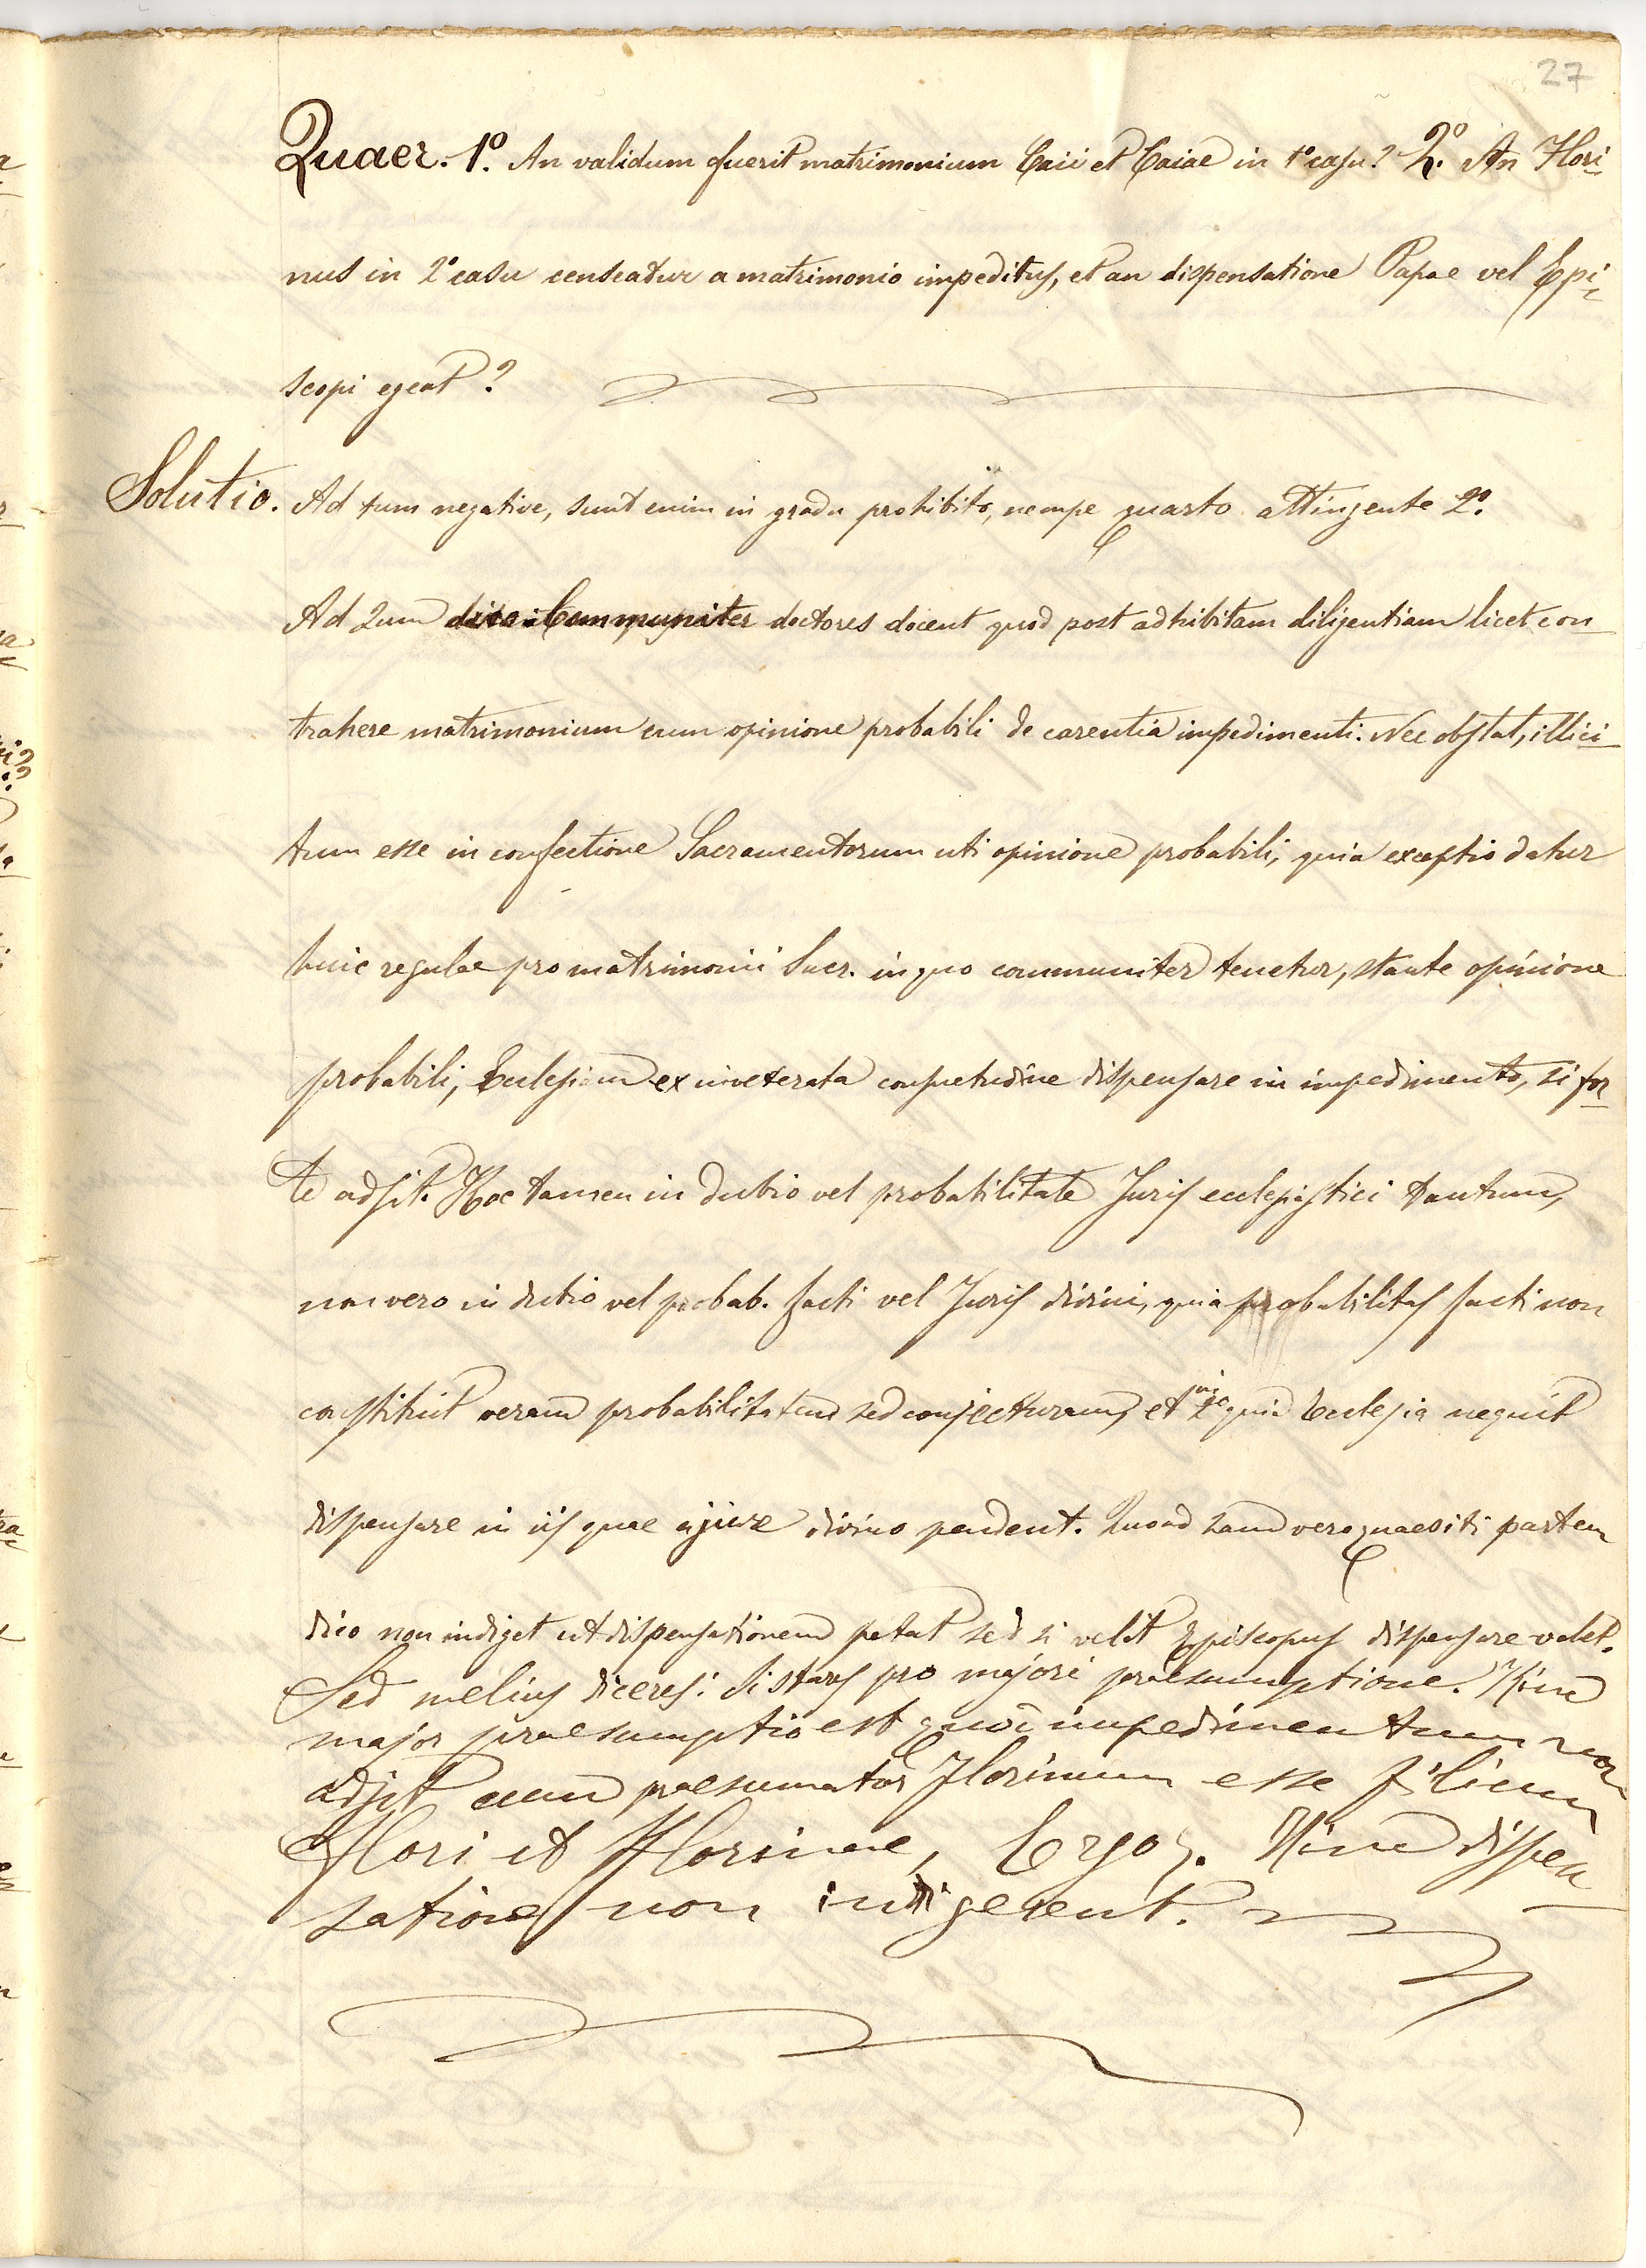 27
Quaer. 1º. An validum fuerit matrimonium Caii et Caiae in 1º casu? 2º. An Flori-
nus in 2º casu censeatur a matrimonio impeditus, et an dispensatione Papae vel Epi-
scopi egeat?
Solutio. Ad 1um negative, sunt enim in gradu prohibito, nempe quarto attingente 2º.
Ad 2um dico: Communiter doctores docent quod post adhibitam diligentiam licet con-
trahere matrimonium cum opinione probabili de carentia impedimenti. Nec obstat, illici-
tum esse in confectione Sacramentorum uti opinione probabili, quia exceptio datur
huic regulae pro matrimonii Sacr. in quo communiter tenetur, stante opinione
probabili, Ecclesiam ex inveterata consuetudine dispensare in impedimento, si for-
te adsit. Hoc tamen in dubio vel probabilitate Juris ecclesiastici tantum,
non vero in dubio vel probab. facti vel Juris divini, quia probabilitas facti non
constituit veram probabilitatem sed conjecturam, et quia Ecclesia nequit
dispensare in iis quae a jure divino pendent. Quoad 2am vero quaesiti partem
dico non indiget ut dispensationem petat sed si velit Episcopus dispensare valet.
Sed melius diceres: si stares pro majori praesumptione. Hinc
major praesumptio est quod impedimentum non
adsit cum praesumatur Florinum esse filium
Flori et Florinae, Ergo. Hinc dispen-
satione non indigerent.